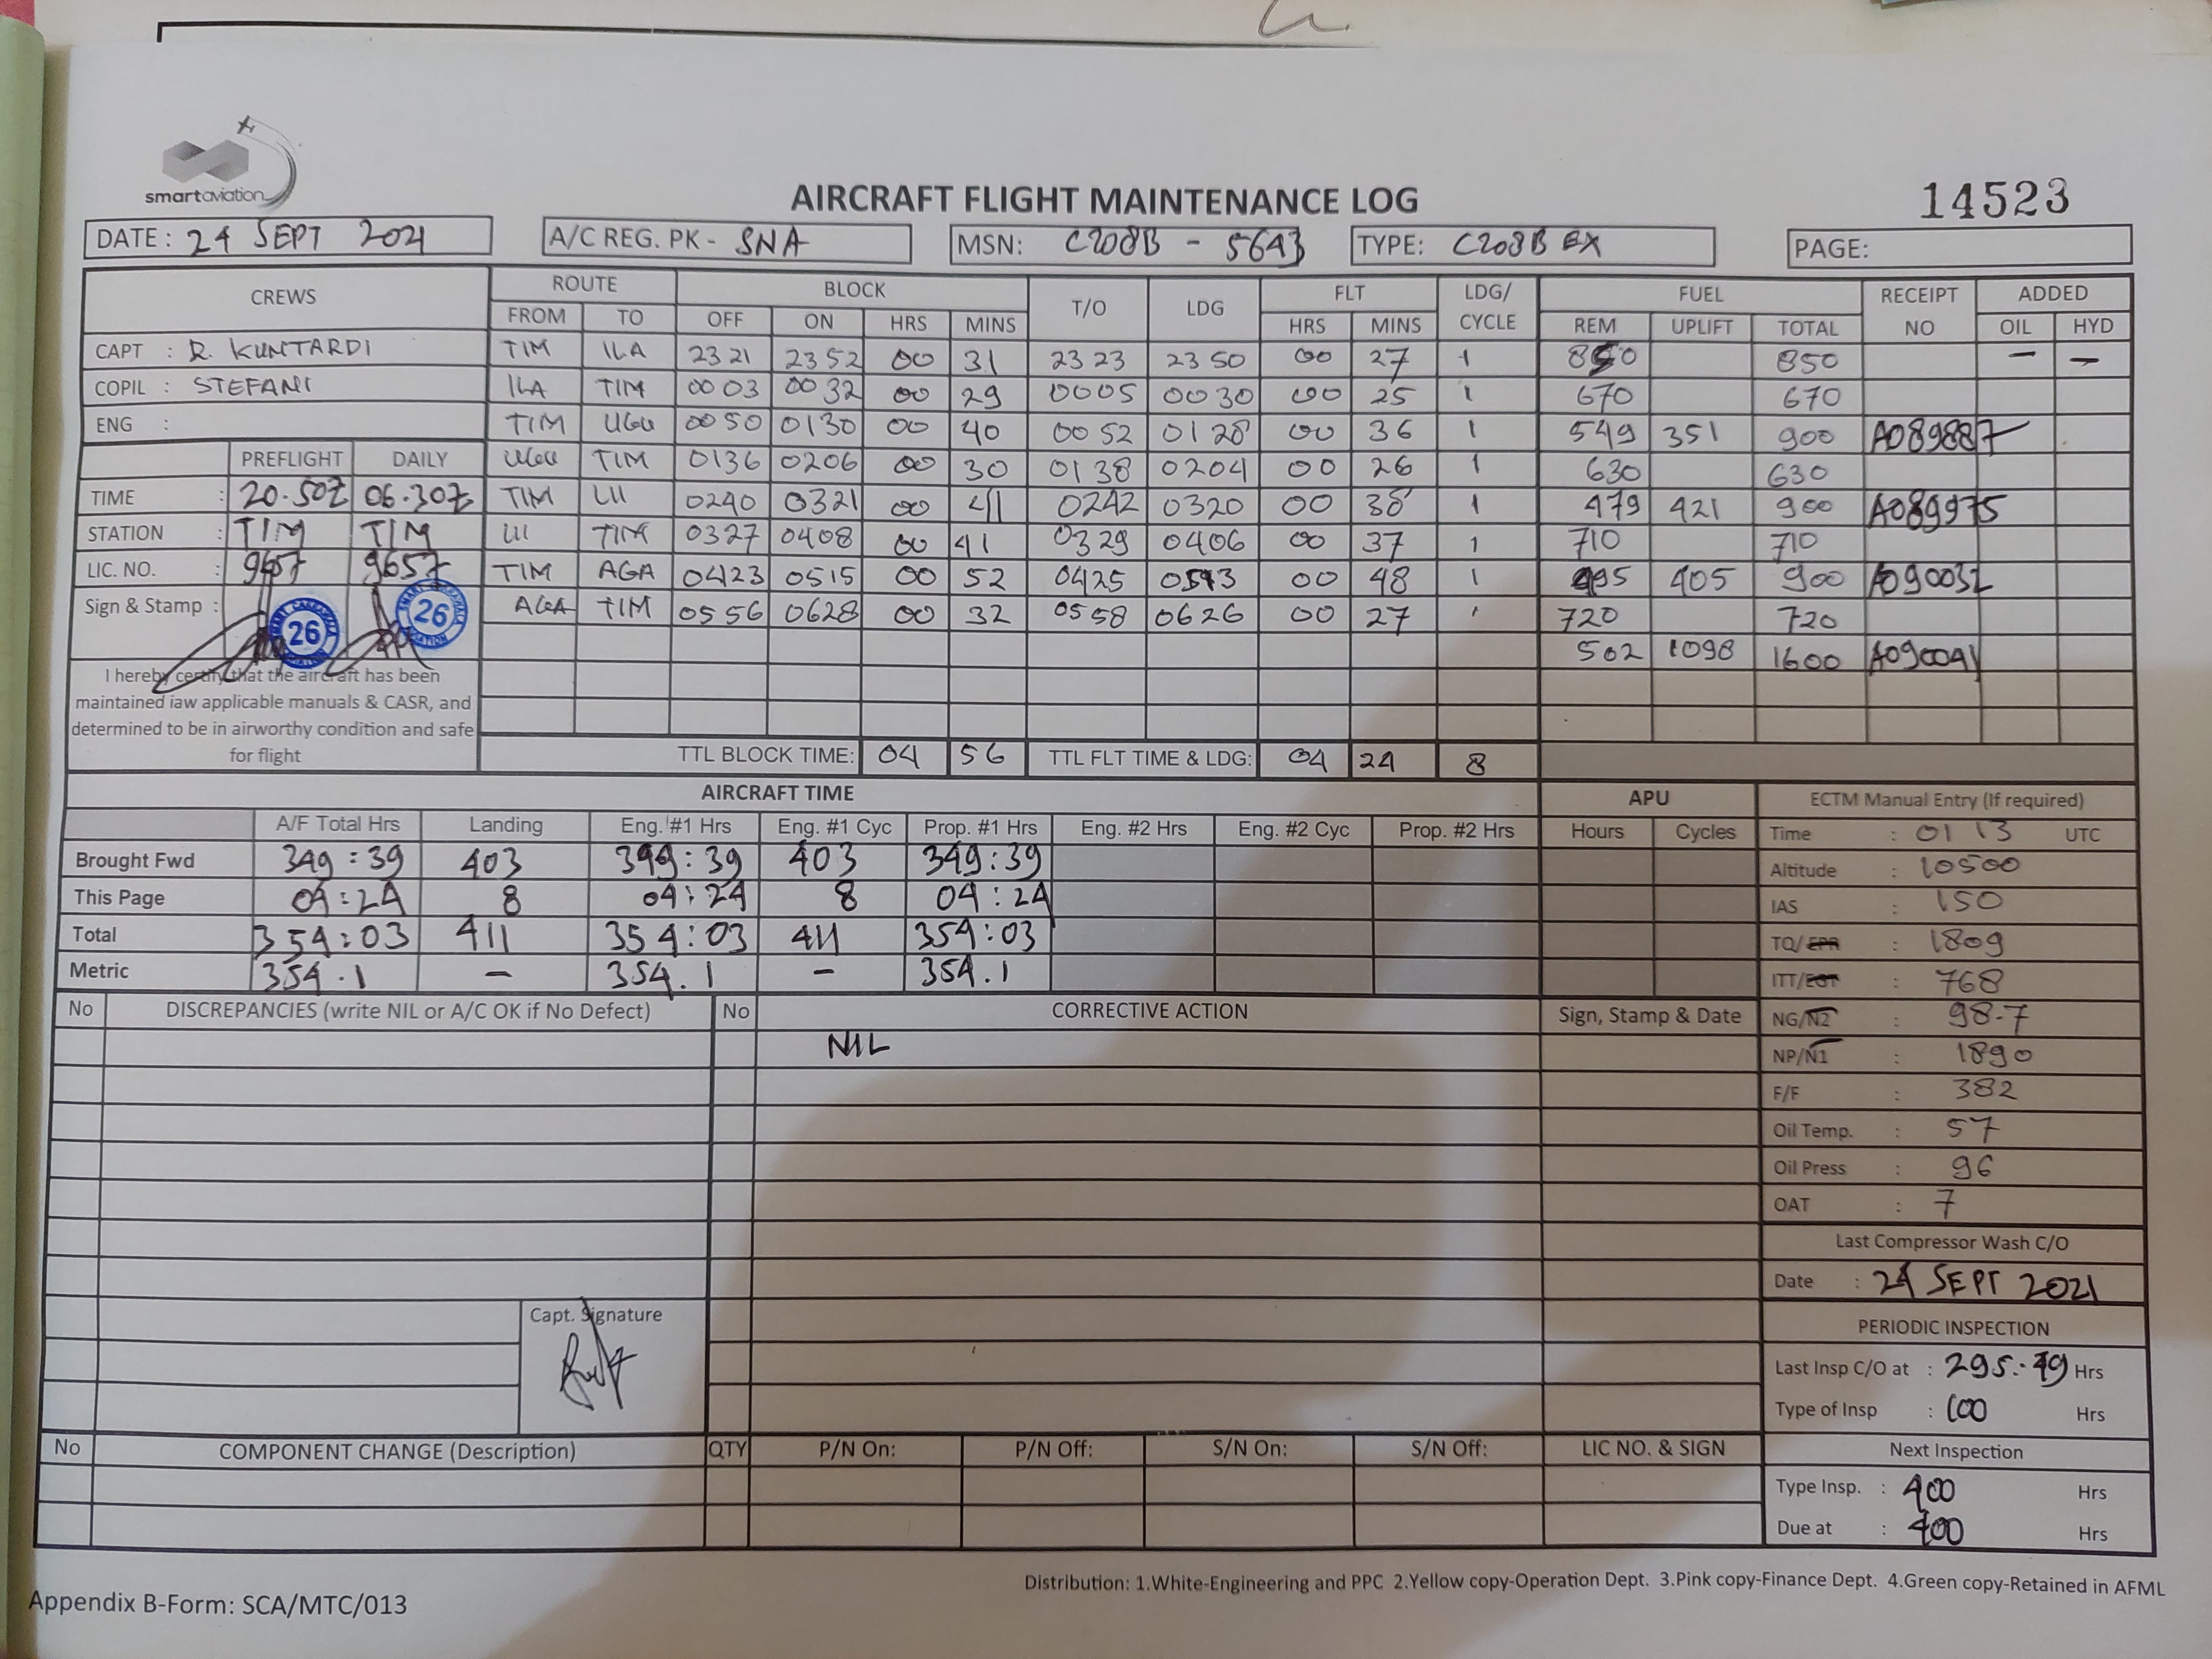 smartaviation
AIRCRAFT FLIGHT MAINTENANCE LOG
14523
DATE : 24 SEPT 2021
A/C REG. PK - SNA
MSN: C208B - 5643
TYPE: C208B EX
PAGE:
CREWS ROUTE BLOCK T/O LDG FLT LDG/CYCLE FUEL RECEIPT NO ADDED
FROM TO OFF ON HRS MINS HRS MINS REM UPLIFT TOTAL OIL HYD
CAPT : R. KUNTARDI TIM ILA 2321 2352 00 31 2323 2350 00 27 1 850 850 - -
COPIL : STEFANI ILA TIM 0003 0032 00 29 0005 0030 00 25 1 670 670
ENG : TIM UGU 0050 0130 00 40 0052 0128 00 36 1 549 351 900 A089887
PREFLIGHT DAILY UGU TIM 0136 0206 00 30 0138 0204 00 26 1 630 630
TIME : 20.50Z 06.30Z TIM LII 0240 0321 00 41 0242 0320 00 38 1 479 421 900 A089975
STATION : TIM TIM LII TIM 0327 0408 00 41 0329 0406 00 37 1 710 710
LIC. NO. : 9657 9657 TIM AGA 0423 0515 00 52 0425 0513 00 48 1 495 405 900 A090032
Sign & Stamp : 26 26 AGA TIM 0556 0628 00 32 0558 0626 00 27 1 720 720
502 1098 1600 A090041
I hereby certify that the aircraft has been
maintained iaw applicable manuals & CASR, and
determined to be in airworthy condition and safe
for flight
TTL BLOCK TIME: 04 56 TTL FLT TIME & LDG: 04 24 8
AIRCRAFT TIME APU
A/F Total Hrs Landing Eng. #1 Hrs Eng. #1 Cyc Prop. #1 Hrs Eng. #2 Hrs Eng. #2 Cyc Prop. #2 Hrs Hours Cycles
Brought Fwd 349:39 403 349:39 403 349:39
This Page 04:24 8 04:24 8 04:24
Total 354:03 411 354:03 411 354:03
Metric 354.1 - 354.1 - 354.1
ECTM Manual Entry (If required)
Time : 01 13 UTC
Altitude : 10500
IAS : 150
TQ/EPR : 1809
ITT/EGT : 768
NG/N2 : 98.7
NP/N1 : 1890
F/F : 382
Oil Temp. : 57
Oil Press : 96
OAT : 7
Last Compressor Wash C/O
Date : 24 SEPT 2021
PERIODIC INSPECTION
Last Insp C/O at : 295:49 Hrs
Type of Insp : 100 Hrs
Next Inspection
Type Insp. : 400 Hrs
Due at : 400 Hrs
No DISCREPANCIES (write NIL or A/C OK if No Defect) No CORRECTIVE ACTION Sign, Stamp & Date
NIL
Capt. Signature
No COMPONENT CHANGE (Description) QTY P/N On: P/N Off: S/N On: S/N Off: LIC NO. & SIGN
Distribution: 1.White-Engineering and PPC 2.Yellow copy-Operation Dept. 3.Pink copy-Finance Dept. 4.Green copy-Retained in AFML
Appendix B-Form: SCA/MTC/013